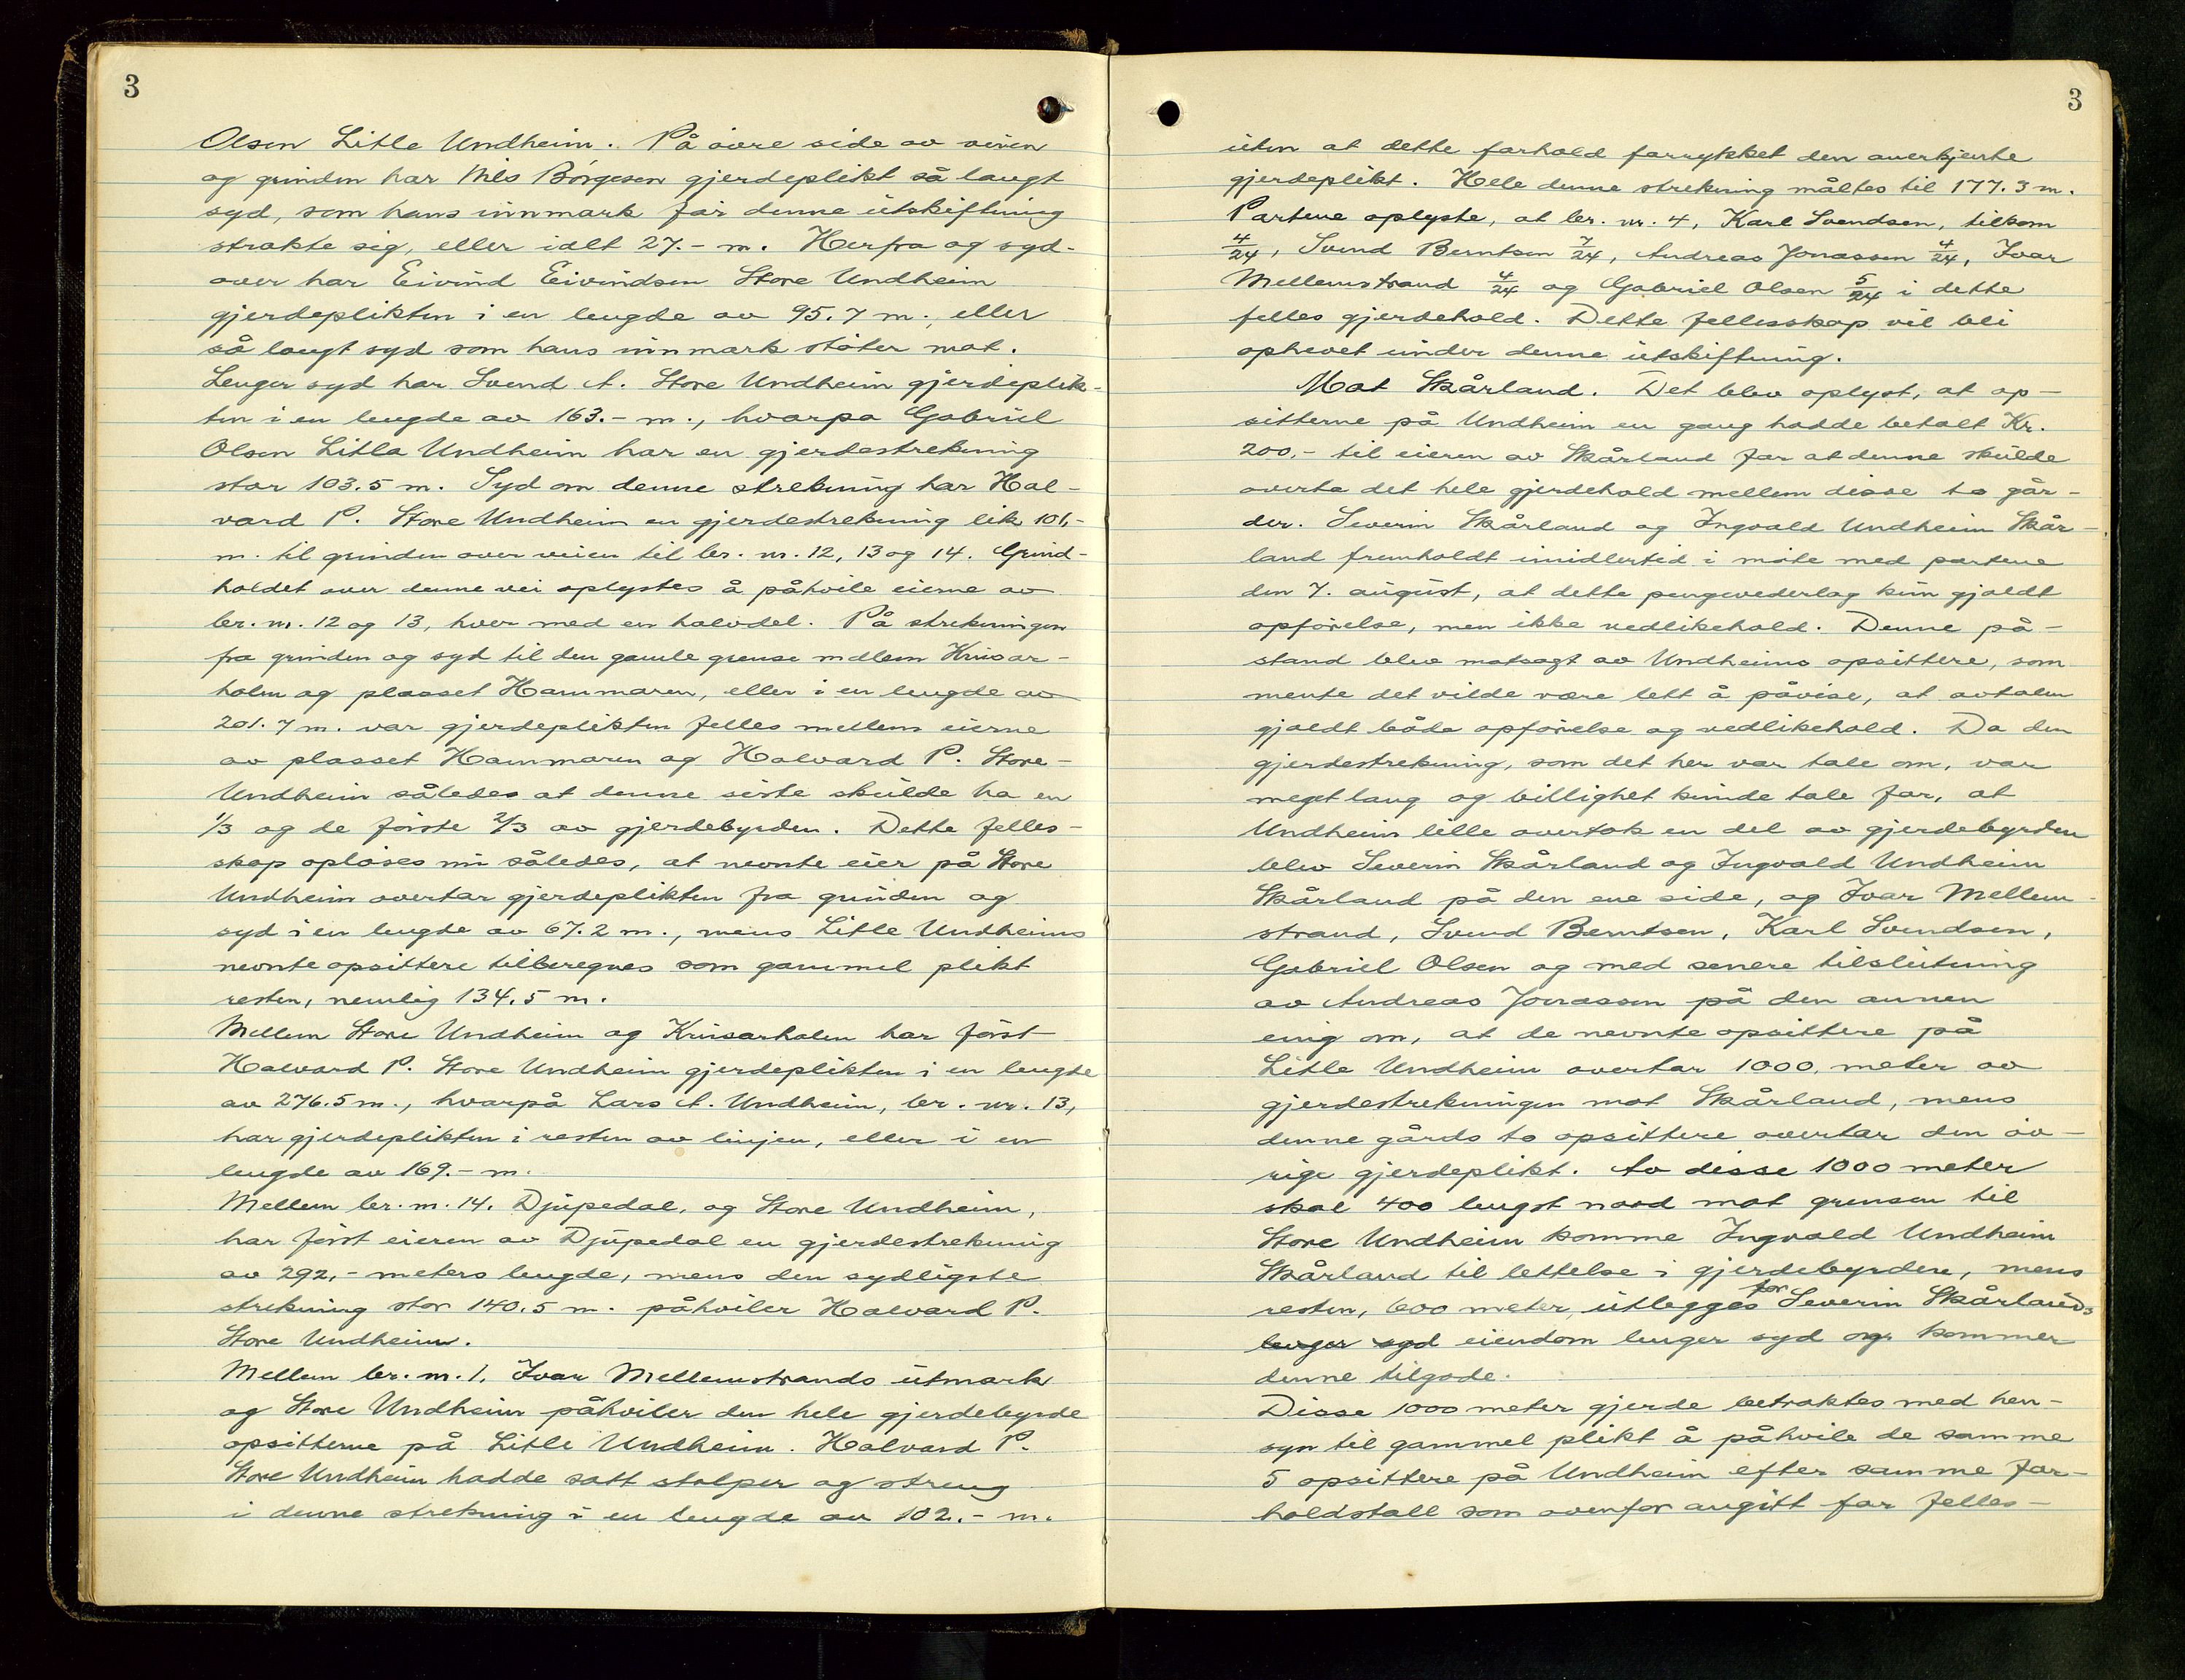 3
Olsen Litle Undheim. På øvre side av veien
og grinden har Nils Börgesen gjerdeplikt så langt
syd, som hans innmark för denne utskiftning
strakte sig, eller ialt 27.- m. Herfra og syd-
over har Eivind Eivindsen Store Undheim
gjerdeplikten i en lengde av 95.7 m., eller
så langt syd som hans innmark stöter mot.
Lenger syd har Svend A. Store Undheim gjerdeplik-
ten i en lengde av 163.- m., hvorpa Gabriel
Olsen Litla Undheim har en gjerdestrekning
stor 103.5 m. Syd om denne strekning har Hal-
vard P. Store Undheim en gjerdestrekning lik 101,-
m. til grinden over veien til br. nr. 12, 13 og 14. Grind-
holdet over denne vei oplystes å påhvile eierne av
br. nr. 12 og 13, hver med en halvdel. På strekningen
fra grinden og syd til den gamle grense mellem Krusar-
holen og plasset Hammaren, eller i en lengde av
201.7 m. var gjerdeplikten felles mellem eierne
av plasset Hammaren og Halvard P. Store-
Undheim således at denne siste skulde ha en
1/3 og de förste 2/3 av gjerdebyrden. Dette felles-
skap oplöses nu således, at nevnte eier på Store
Undheim overtar gjerdeplikten fra grinden og
syd i en lengde av 67.2 m., mens Litle Undheims
nevnte opsittere tilberegnes som gammel plikt
resten, nemlig 134.5 m.
Mellem Store Undheim og Krusarholen har först
Halvard P. Store Undheim gjerdeplikten i en lengde
av 276.5 m., hvorpå Lars A. Undheim, br. nr. 13,
har gjerdeplikten i resten av linjen, eller i en
lengde av 169.- m.
Mellem br. nr. 14. Djupedal, og Store Undheim,
har först eieren av Djupedal en gjerdestrekning
av 292,- meters lengde, mens den sydligste
strekning stor 140.5 m. påhviler Halvard P.
Store Undheim.
Mellem br. nr. 1. Ivar Mellemstrands utmark
og Store Undheim påhviler den hele gjerdebyrde
opsitterne på Litle Undheim. Halvard P.
Store Undheim hadde satt stolper og streng
i denne strekning i en lengde av 102.- m.
3
uten at dette forhold forrykket den anerkjente
gjerdeplikt. Hele denne strekning måltes til 177.3 m.
Partene oplyste, at br. nr. 4, Karl Svendsen, tilkom
4/24, Svend Berntsen 7/24, Andreas Jonassen 4/24, Ivar
Mellemstrand 4/24 og Gabriel Olsen 5/24 i dette
felles gjerdehold. Dette fellesskap vil bli
ophevet under denne utskiftning.
Mot Skårland. Det blev oplyst, at op-
sitterne på Undheim en gang hadde betalt Kr.
200.- til eieren av Skårland for at denne skulde
overta det hele gjerdehold mellem disse to går-
der. Severin Skårland og Ingvald Undheim Skår-
land fremholdt imidlertid i möte med partene
den 7. august, at dette pengevederlag kun gjaldt
opförelse, men ikke vedlikehold. Denne på-
stand blev motsagt av Undheims opsittere, som
mente det vilde være lett å påvise, at avtalen
gjaldt både opförelse og vedlikehold. Da den
gjerdestrekning, som det her var tale om, var
meget lang og billighet kunde tale for, at
Undheim lille overtok en del av gjerdebyrden
blev Severin Skårland og Ingvald Undheim
Skårland på den ene side, og Ivar Mellem-
strand, Svend Berntsen, Karl Svendsen,
Gabriel Olsen og med senere tilslutning
av Andreas Jonassen på den annen
enig om, at de nevnte opsittere på
Litle Undheim overtar 1000, meter av
gjerdestrekningen mot Skårland, mens
denne gårds to opsittere overtar den öv-
rige gjerdeplikt. Av disse 1000 meter
skal 400 lengst nord mot grensen til
Store Undheim komme Ingvald Undheim
Skårland til lettelse i gjerdebyrden, mens
resten, 600 meter, utlegges for Severin Skårlands
lenger syd eiendom lenger syd og kommer
denne tilgode.
Disse 1000 meter gjerde betraktes med hen-
syn til gammel plikt å påhvile de samme
5 opsittere på Undheim efter samme for-
holdstall som ovenfor angitt for felles-